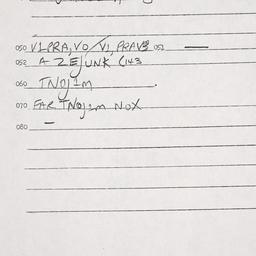 050 V1PRA, VO/V1, PRAVE 051 —
052 A ZEJUNK C143
060 TNOJ1M .
070 FAR TNOJ1M NOX
080 —